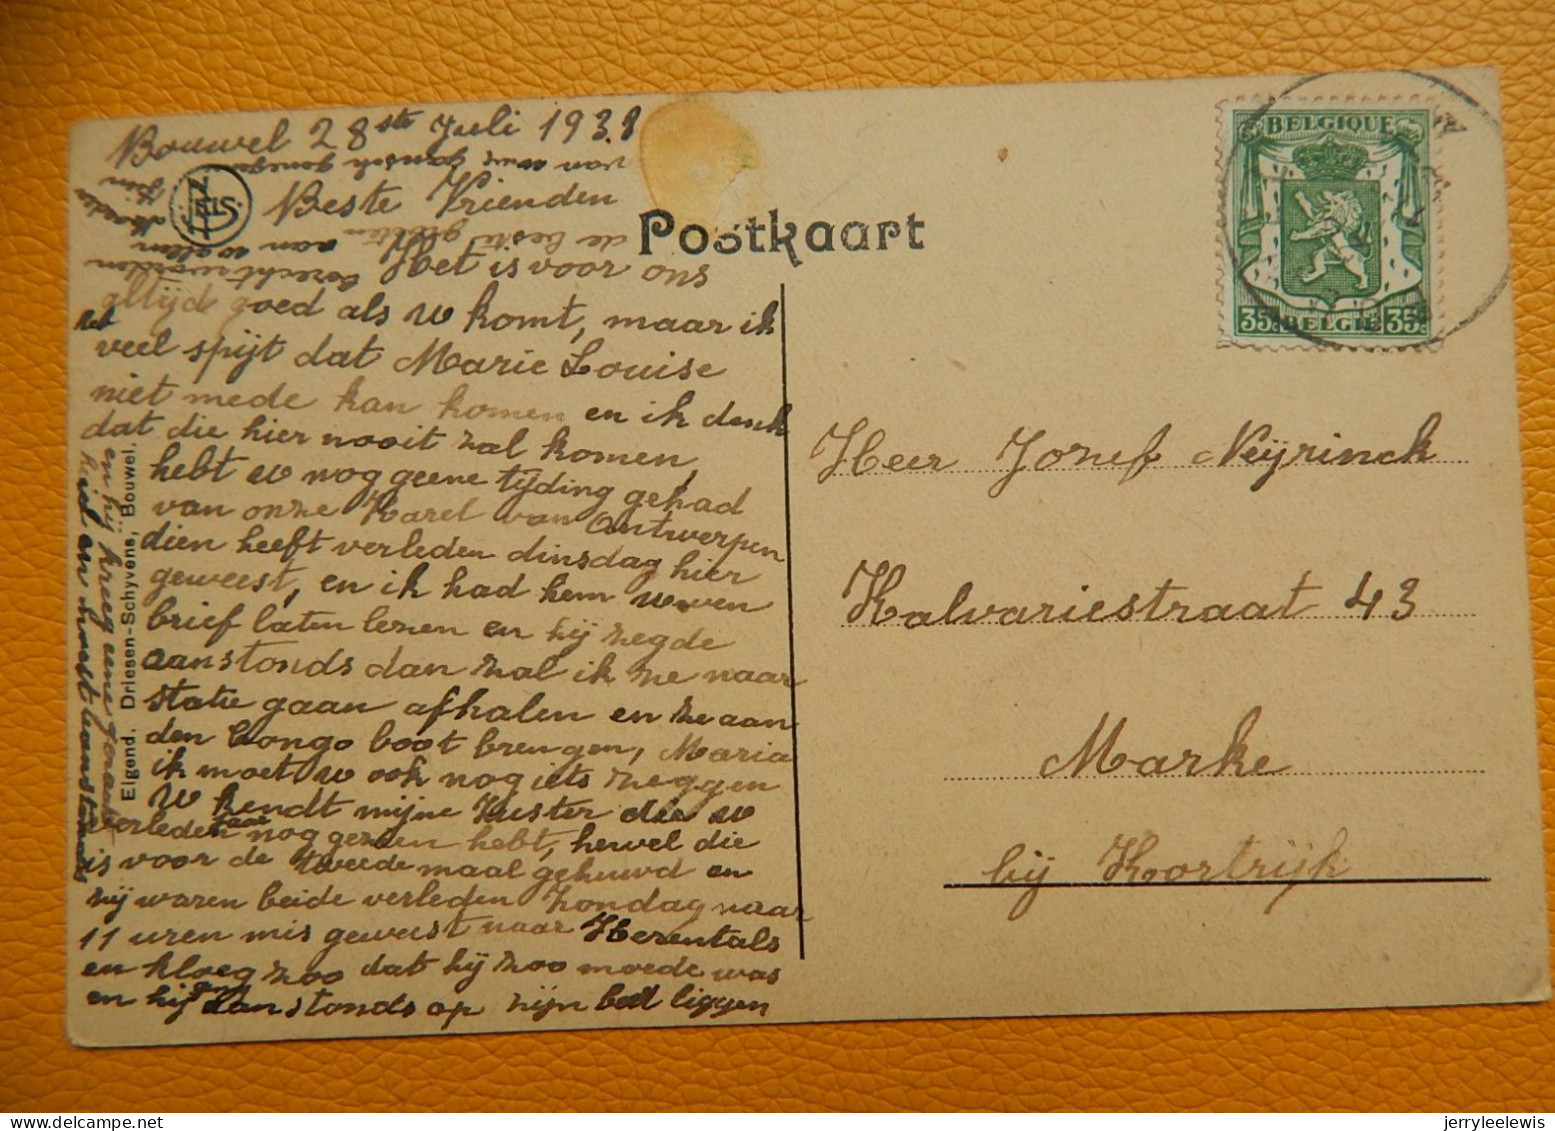 Bouwel 28ste Juli 1938
Beste Vrienden
Het is voor ons
altijd goed als w komt, maar ik
het
veel spijt dat Marie Louise
niet mede kan komen en ik denk
dat die hier nooit zal komen,
hebt w nog geene tijding gehad
van onze Karel van Antwerpen
dien heeft verleden dinsdag hier
geweest, en ik had hem uwen
brief laten lezen en hij zegde
aanstonds dan zal ik ze naar
statie gaan afhalen en ze aan
den Congo boot brengen, Maria
ik moet w ook nog iets zeggen
W kendt mijne Zuster die w
verleden jaar nog gezien hebt, hewel die
is voor de tweede maal gehuwd en
zij waren beide verleden Zondag naar
11 uren mis geweest naar Herentals
en kloeg zoo dat hij zoo moede was
en hij ging aanstonds op zijn bed liggen
en hij kreeg eene
heid en moest aanstonds
berecht worden
aan wien
de beste groeten
van ons gansch
Eigend. Driesen-Schyvens, Bouwel.
NELS
Postkaart
BELGIQUE
35c 35c
BELGIE
Heer Jozef Neyrinck
Kalvariestraat 43
Marke
bij Kortrijk
jerryleelewis